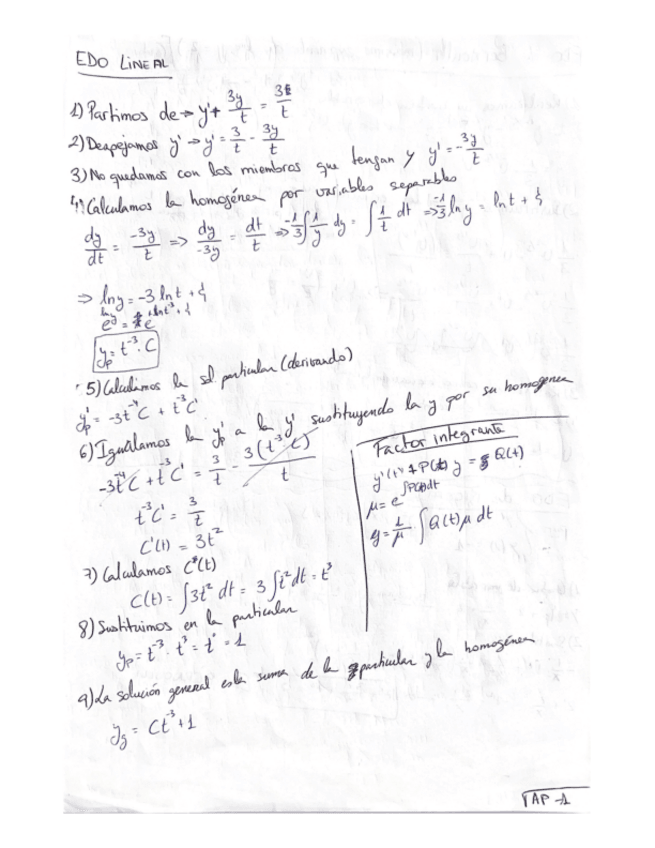 EDO LINEAL
1) Partimos de → y' + 3y/t = 3/t
2) Despejamos y' → y' = 3/t - 3y/t
3) No quedamos con los miembros que tengan y y' = -3y/t
4) Calculamos la homogénea por variables separables
dy/dt = -3y/t => dy/-3y = dt/t => -1/3 ∫ 1/y dy = ∫ 1/t dt => -1/3 ln y = ln t + ζ
=> ln y = -3 ln t + ζ
y_p = t^-3 · C
5) Calculamos la sol particular (derivando)
y'_p = -3t^-4 C + t^-3 C'
6) Igualamos la y'_p a la y' sustituyendo la y por su homogenea
-3t^-4 C + t^-3 C' = 3/t - 3(t^-3 · C)/t
t^-3 C' = 3/t
C'(t) = 3t^2
7) Calculamos C(t)
C(t) = ∫ 3t^2 dt = 3 ∫ t^2 dt = t^3
8) Sustituimos en la particular
y_p = t^-3 · t^3 = t^0 = 1
9) La solución general es la suma de la particular y la homogénea
y_g = Ct^-3 + 1
Factor integrante
y'(t) + P(t) y = Q(t)
μ = e^∫P(t)dt
y = 1/μ ∫ Q(t) μ dt
TAP -1